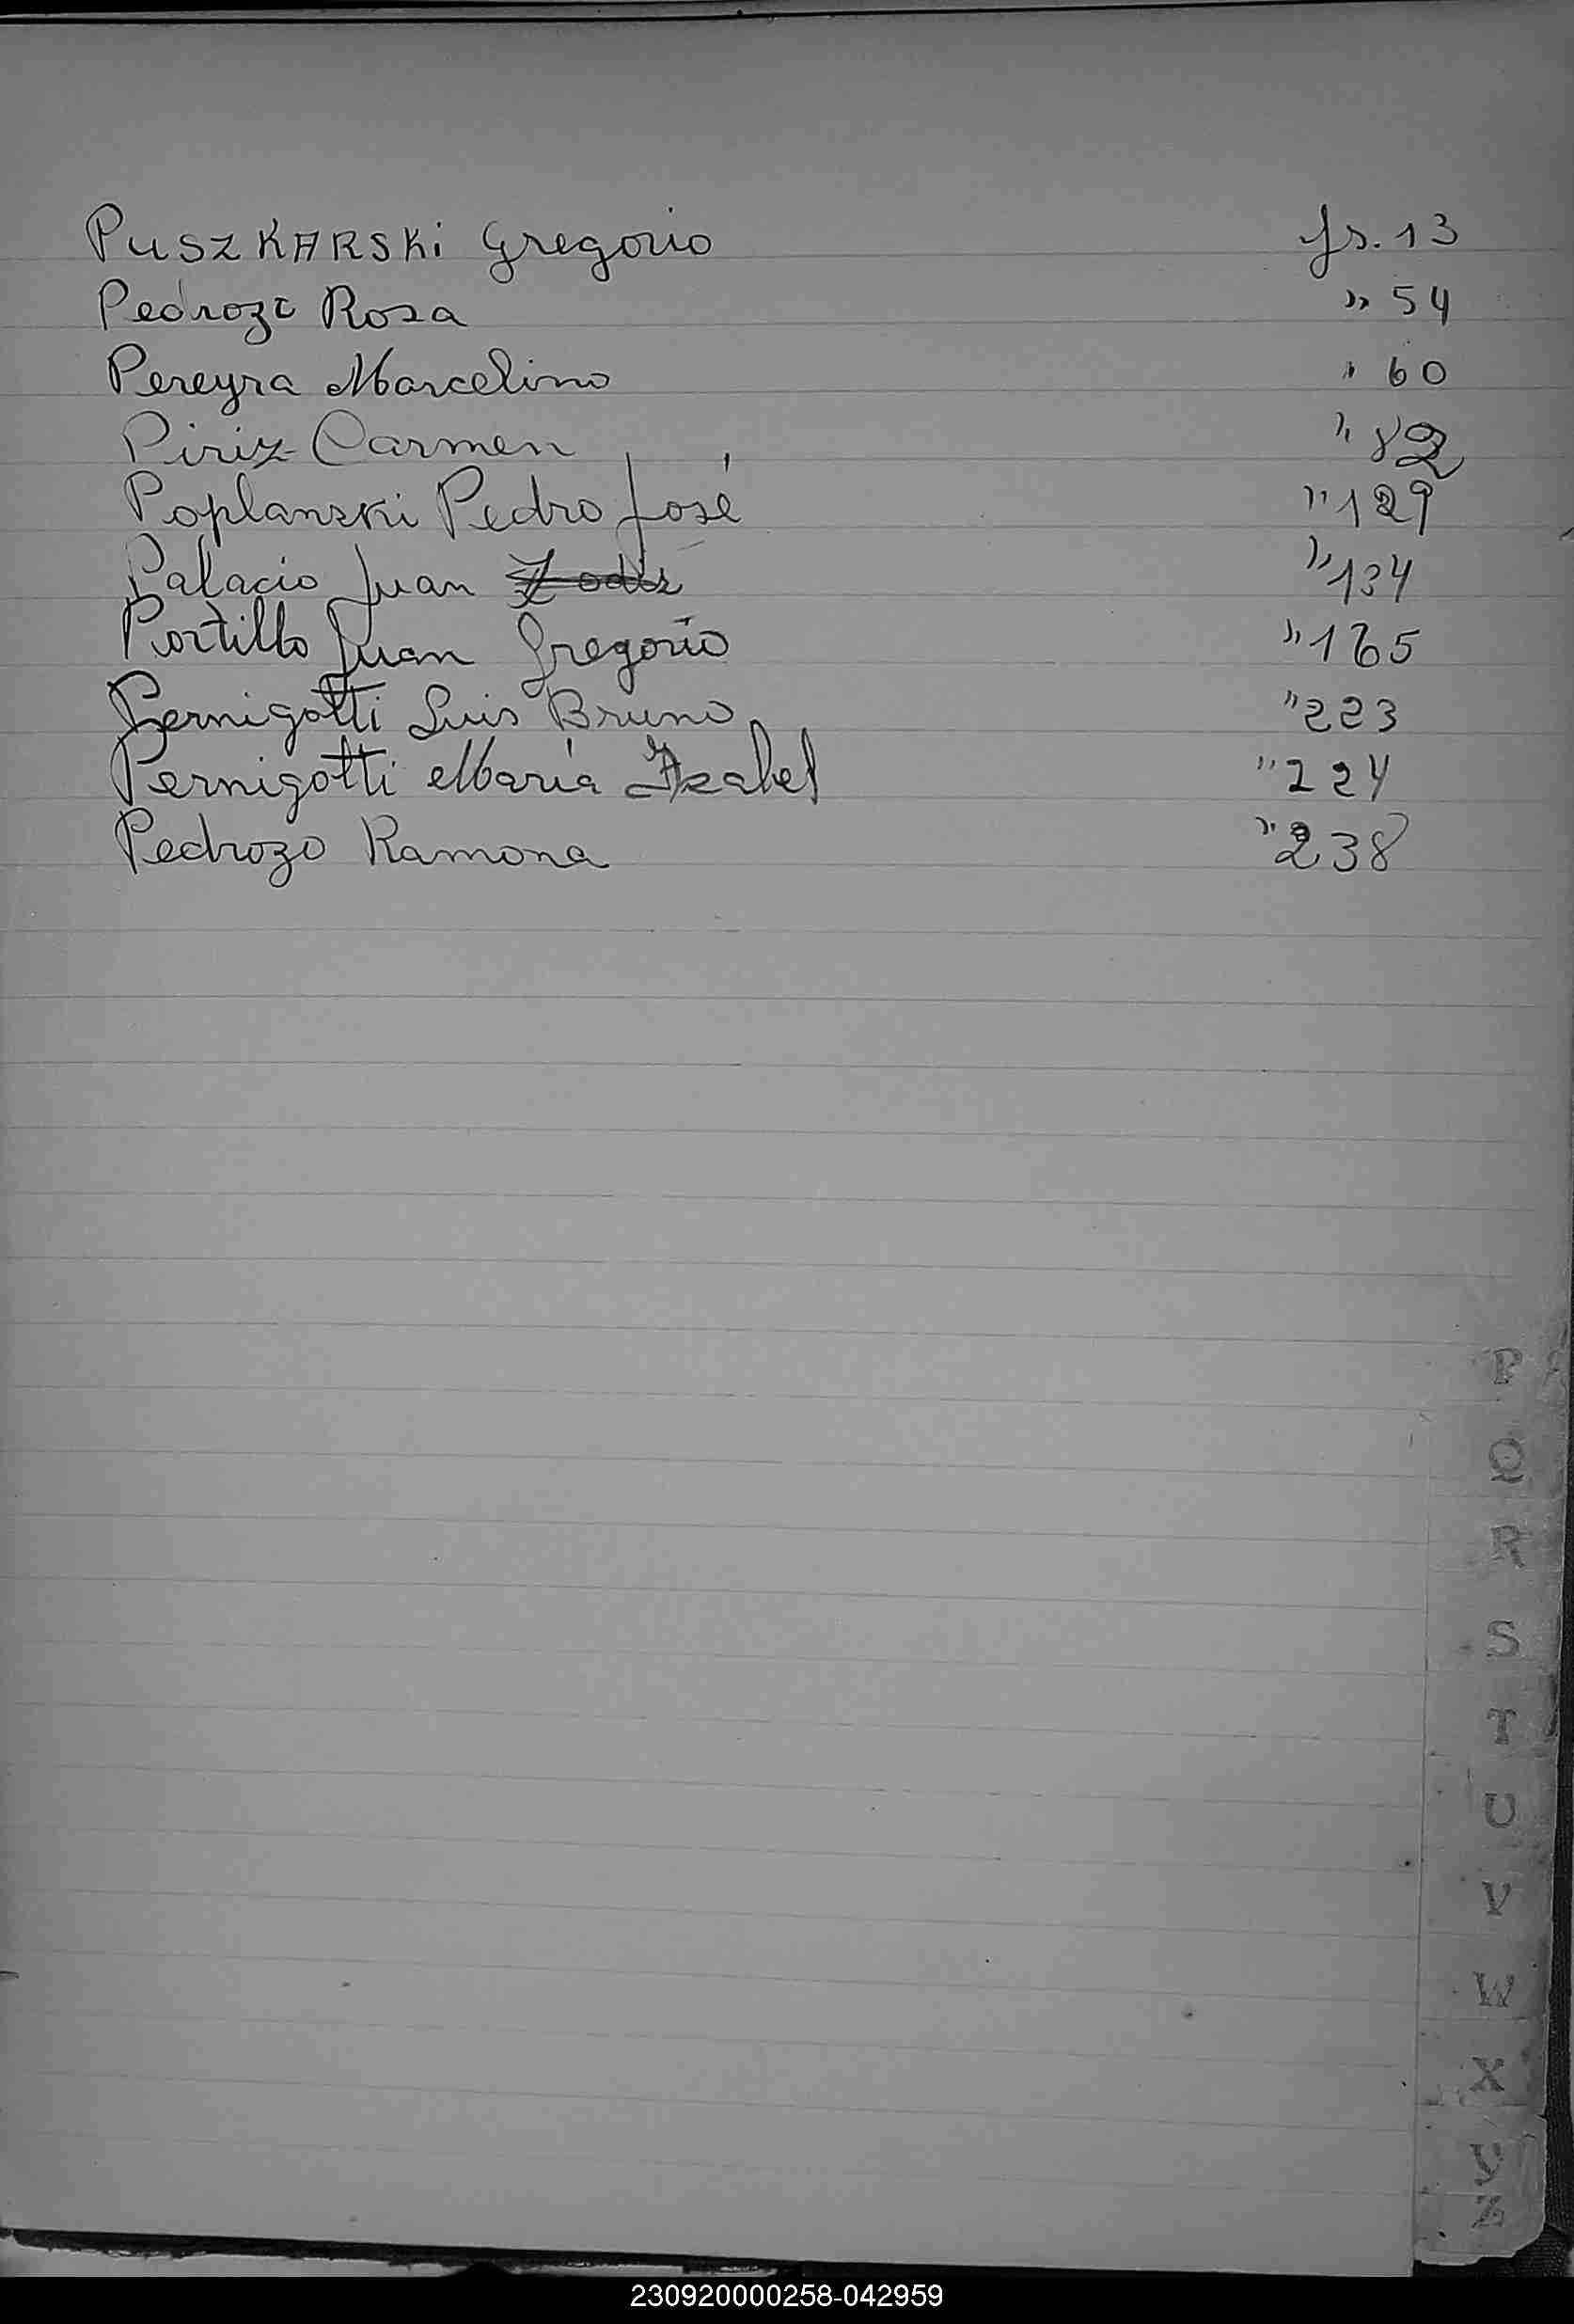 PUSZKARSKi Gregorio fs. 13
Pedrozo Rosa " 54
Pereyra Marcelino " 60
Piriz Carmen " 82
Poplanski Pedro José " 129
Palacio Juan " 134
Portillo Juan Gregorio " 165
Pernigotti Luis Bruno " 223
Pernigotti María Isabel " 224
Pedrozo Ramona " 238
P
Q
R
S
T
U
V
W
X
Y
Z
230920000258-042959